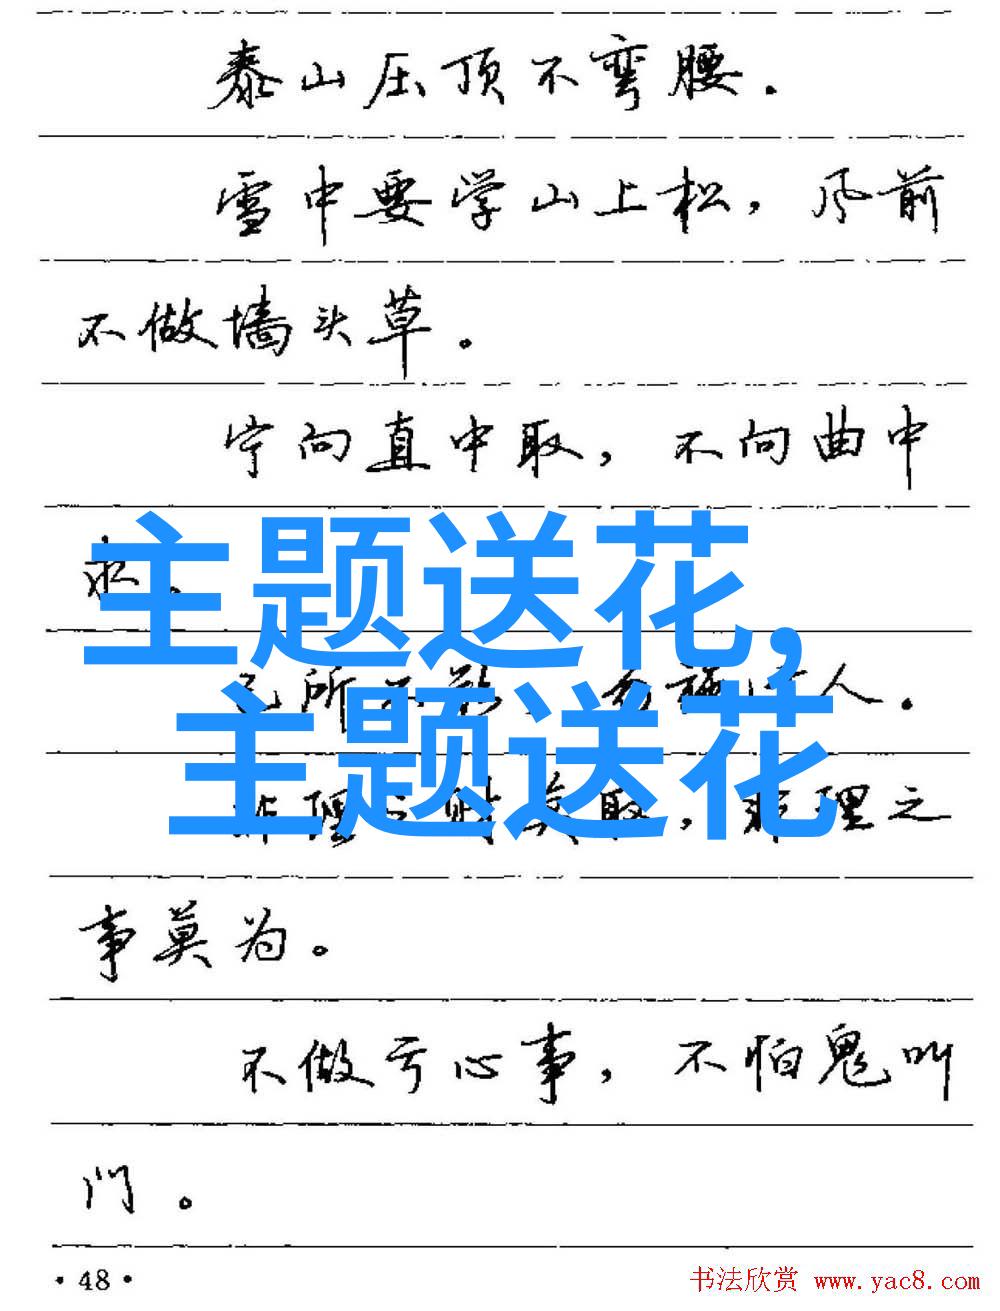 泰山压顶不弯腰.
雪中要学山上松, 风前
不做墙头草。
宁向直中取, 不向曲中
求.
主题送花,
己所不欲, 勿施于人.
主题送花
非理之财莫取, 非理之
事莫为。
不做亏心事, 不怕鬼叫
门。
·48·
书法欣赏 www.yac8.com